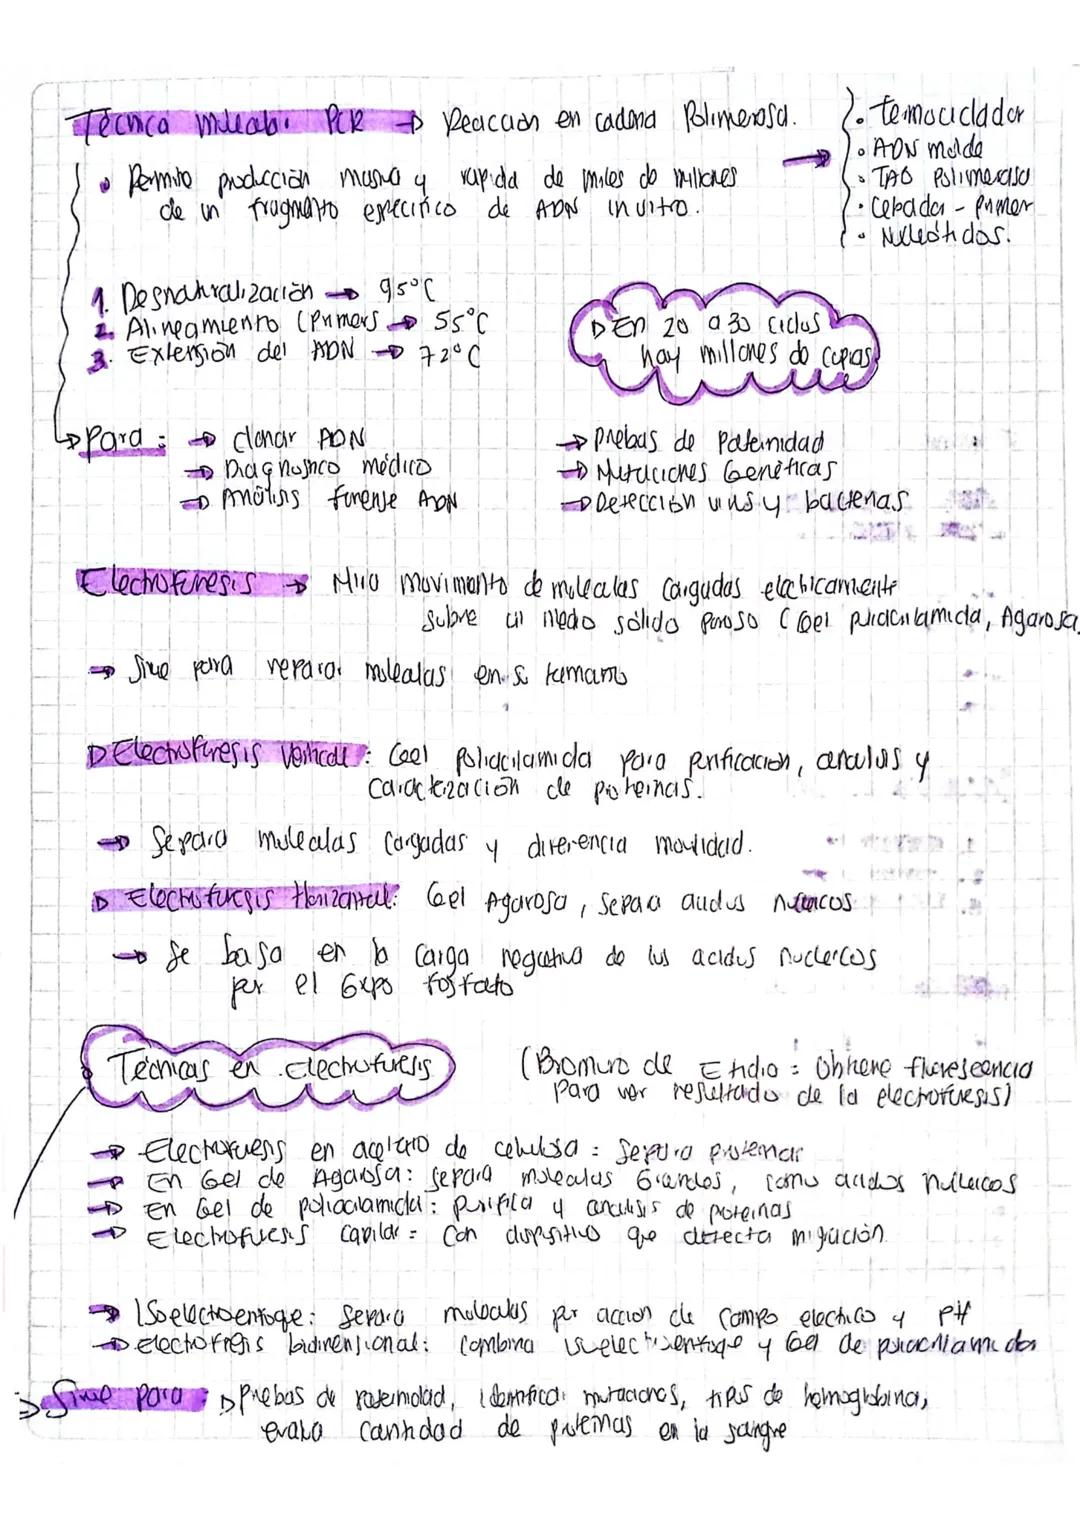 Técnica molecular PCR → Reacción en cadena Polimerasa.
• Permite producción masiva y rapida de miles de millones
de un fragmento especifico de ADN in vitro.
→
• termociclador
• ADN molde
• TAQ Polimerasa
• Cebador - Primer
• Nucleótidos.
1. Desnaturalización → 95°C
2. Alineamiento (Primers → 55°C
3. Extensión del ADN → 72°C
En 20 a 30 ciclos
hay millones de copias
→ Para :
→ clonar ADN
→ Diagnostico médico
→ Análisis forense ADN
→ Prebas de Paternidad
→ Mutaciones Genéticas
→ Detección virus y bacterias
Electroforesis → Mira movimiento de moleculas cargadas electricamente
sobre un medio sólido poroso (Gel poliacrilamida, Agarosa.
→ Sirve para reparar moleculas en su tamano
Electroforesis Vertical : Geel Poliacilamida para purificacion, analisis y
caracterización de proteinas.
→ Separa moleculas cargadas y diferencia movilidad.
Electroforesis Horizontal: Gel Agarosa, separa acidos nucleicos
→ Se basa en la carga negativa de los acidos nucleicos
por el Grupo fosfato
Técnicas en Electroforesis
(Bromuro de Etidio : Obtiene fluoreseencia
para ver resultado de la electroforesis)
→ Electroforesis en acetato de celulosa : Separa proteinas
→ En Gel de Agarosa: separa moleculas Grandes, como acidos nucleicos
→ En Gel de poliacrilamida: purifica y analisis de proteinas
→ Electroforesis capilar = Con dispositivo que detecta migración
→ Isoelectroenfoque: Separa moleculas por accion de campo electrico y PH
→ Electrofresis bidimensional: combina isoelectroenfoque y Gel de poliacrilamida
⇒ Sirve para : Prebas de paternidad, identificar mutaciones, tipos de hemoglobina,
evalua cantidad de proteinas en la sangre